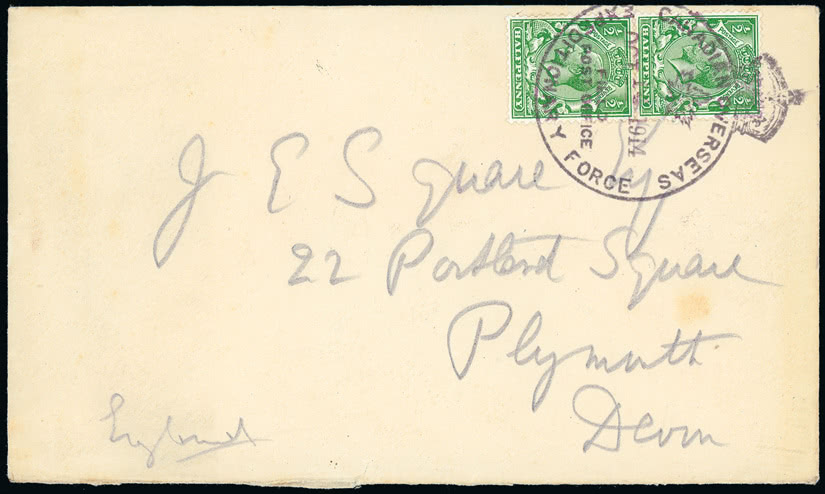 ½ ½ ½ ½
HALFPENNY HALFPENNY
CANADIAN OVERSEAS EXPEDITIONARY FORCE
FIELD
POST OFFICE
OCT 1914
J E Square Esq
22 Portland Square
Plymouth
Devon
England